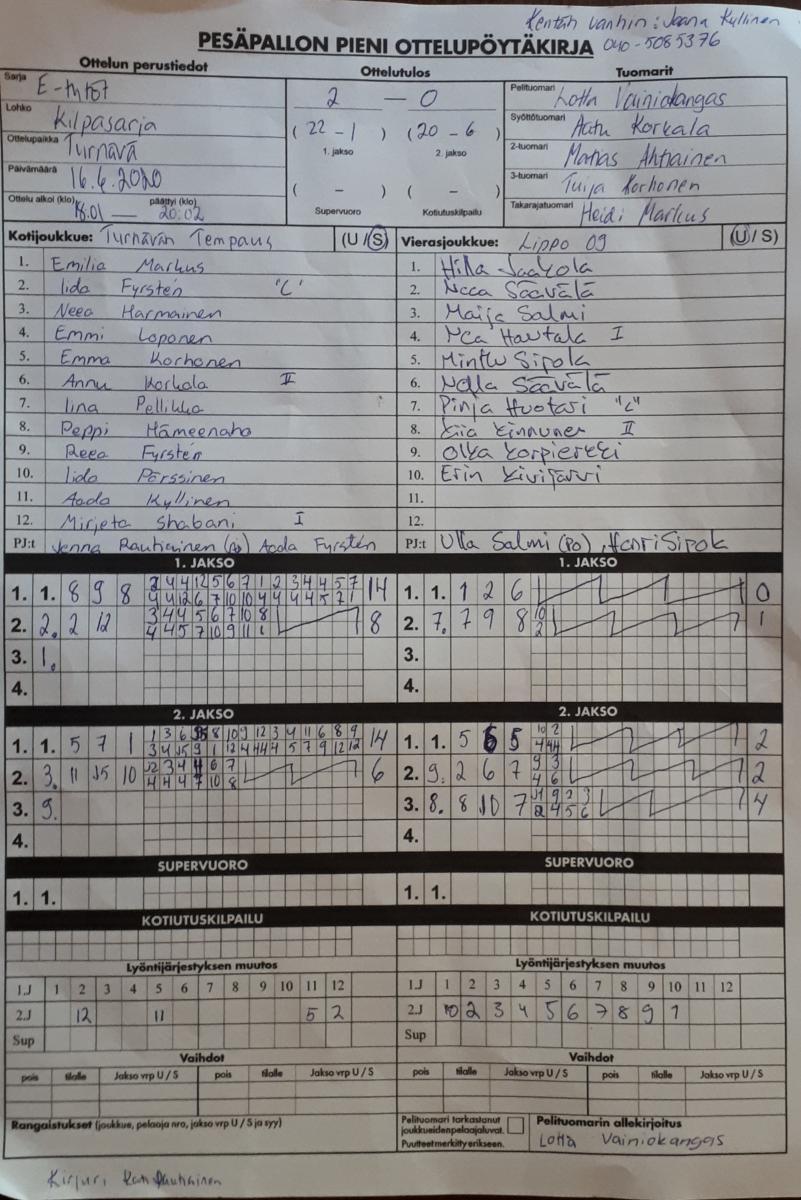 Kentän vanhin: Jaana Kyllinen
PESÄPALLON PIENI OTTELUPÖYTÄKIRJA 040-5085376
Ottelun perustiedot Ottelutulos Tuomarit
Sarja E-tytöt
Lohko Kilpasarja
Ottelupaikka Tyrnävä
Päivämäärä 16.6.2020
Ottelu alkoi (klo) 18.01 — päättyi (klo) 20:02
2 — 0
(22 - 1) (20 - 6)
1. jakso 2. jakso
( - ) ( - )
Supervuoro Kotiutuskilpailu
Pelituomari Lotta Vainiokangas
Syöttötuomari Aatu Korkala
2-tuomari Matias Ahtiainen
3-tuomari Tuija Korhonen
Takarajatuomari Heidi Markus
Kotijoukkue: Tyrnävän Tempaus (U/S)
1. Emilia Markus
2. Iida Fyrstén "C"
3. Neea Harmainen
4. Emmi Loponen
5. Emma Korhonen
6. Annu Korkala II
7. Iina Pellikka
8. Peppi Hämeenaho
9. Reea Fyrstén
10. Iida Pörssinen
11. Aada Kyllinen
12. Mirjeta Shabani I
PJ:t Jenna Rautiainen (Po) Aada Fyrstén
Vierasjoukkue: Lippo 09 (U/S)
1. Hilla Jaakola
2. Neea Säävälä
3. Maija Salmi
4. Nea Hautala I
5. Minttu Sipola
6. Nella Säävälä
7. Pinja Huotari "C"
8. Kiia Kinnunen II
9. Olka Korpierkki
10. Erin Kivijärvi
11.
12.
PJ:t Ulla Salmi (Po), Henri Sipola
1. JAKSO
1. 1. 8 9 8 14
2. 2. 2 12 8
3. 1.
4.
1. JAKSO
1. 1. 1 2 6 0
2. 7. 7 9 8 10 2 1
3.
4.
2. JAKSO
1. 1. 5 7 1 14
2. 3. 11 15 10 6
3. 9.
4.
2. JAKSO
1. 1. 5 6 5 2
2. 9. 2 6 7 2
3. 8. 8 10 7 4
4.
SUPERVUORO
1. 1.
SUPERVUORO
1. 1.
KOTIUTUSKILPAILU
KOTIUTUSKILPAILU
Lyöntijärjestyksen muutos
1.J 1 2 3 4 5 6 7 8 9 10 11 12
2.J 12 11 5 2
Sup
Lyöntijärjestyksen muutos
1.J 1 2 3 4 5 6 7 8 9 10 11 12
2.J 10 2 3 4 5 6 7 8 9 1
Sup
Vaihdot
pois tilalle Jakso vrp U / S pois tilalle Jakso vrp U / S
Vaihdot
pois tilalle Jakso vrp U / S pois tilalle Jakso vrp U / S
Rangaistukset (joukkue, pelaaja nro, jakso vrp U / S ja syy)
Pelituomari tarkastanut
joukkueiden pelaajaluvat.
Puutteet merkitty erikseen.
Pelituomarin allekirjoitus
Lotta Vainiokangas
Kirjuri Rautiainen